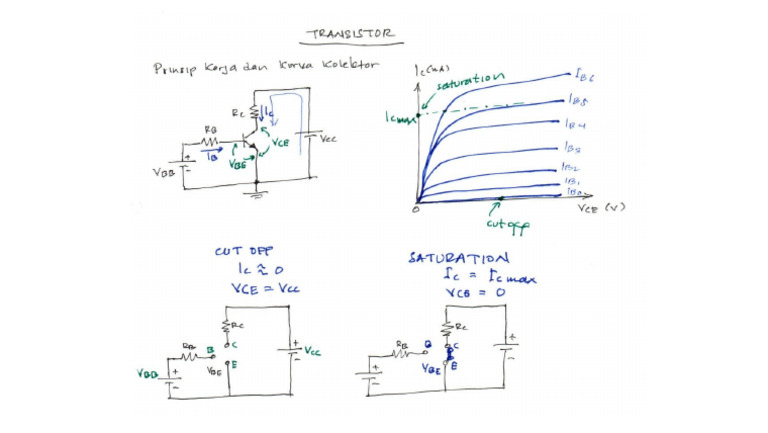 TRANSISTOR
Prinsip Kerja dan Kurva Kolektor
RC
IC
RB
IB
VBE
VCE
VCC
VBB
IC(mA)
saturation
ICmax
IB6
IB5
IB4
IB3
IB2
IB1
IB0
0
VCE (V)
cut off
CUT OFF
IC ≈ 0
VCE = VCC
RC
RB
B
C
E
VBE
VBB
VCC
SATURATION
IC = ICmax
VCB = 0
RC
RB
B
C
E
VBE